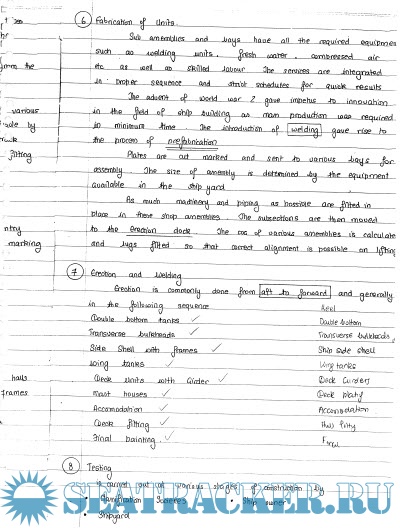 6 Fabrication of Units.
Sub assemblies and bays have all the required equipment
such as welding units, fresh water, compressed air
etc as well as skilled labour The services are integrated
in proper sequence and strict schedules for quick results
The advent of world war 2 gave impetus to innovation
various in the field of ship building as man production was required
by in minimum time. The introduction of welding gave rise to
the process of prefabrication
fitting Plates are cut marked and sent to various bays for
assembly. The size of assembly is determined by the equipment
available in the ship yard
As much machinery and piping as possible are fitted in
place in these shop assemblies. The subsections are then moved
ntry to the erection dock. The COG of various assemblies is calculate
marking and lugs fitted so that correct alignment is possible on lifting
7 Erection and welding
Erection is commonly done from aft to forward and generally
in the following sequence Keel
Double bottom tanks ✓ Double bottom
Transverse bulkheads ✓ Transverse bulkheads
Side Shell with frames ✓ Ship side shell
Wing tanks ✓ Wing tanks
Deck units with Girder ✓ Deck Girders
frames Mast houses ✓ Deck
Accomodation ✓ Accomodation
Deck fitting ✓
Final painting ✓
8 Testing
is carried out at various stages of construction by
• Classification Societies • Ship owner
• Shipyard
SEATRACKER.RU